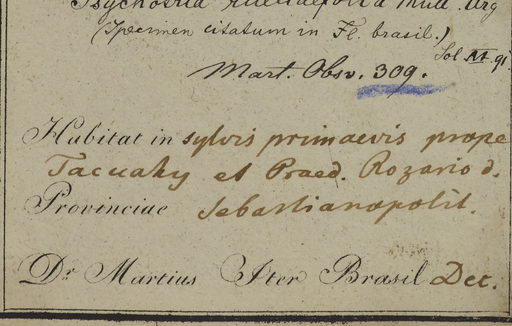 Psychotria Müll. Arg
(Specimen citatum in Fl. brasil.)
Mart. Obsv. 309.
Habitat in sylvis primaevis prope
Tacuahy et Praed. Rozario d.
Provinciae Sebastianopolit.
Dr Martius Iter Brasil Dec.